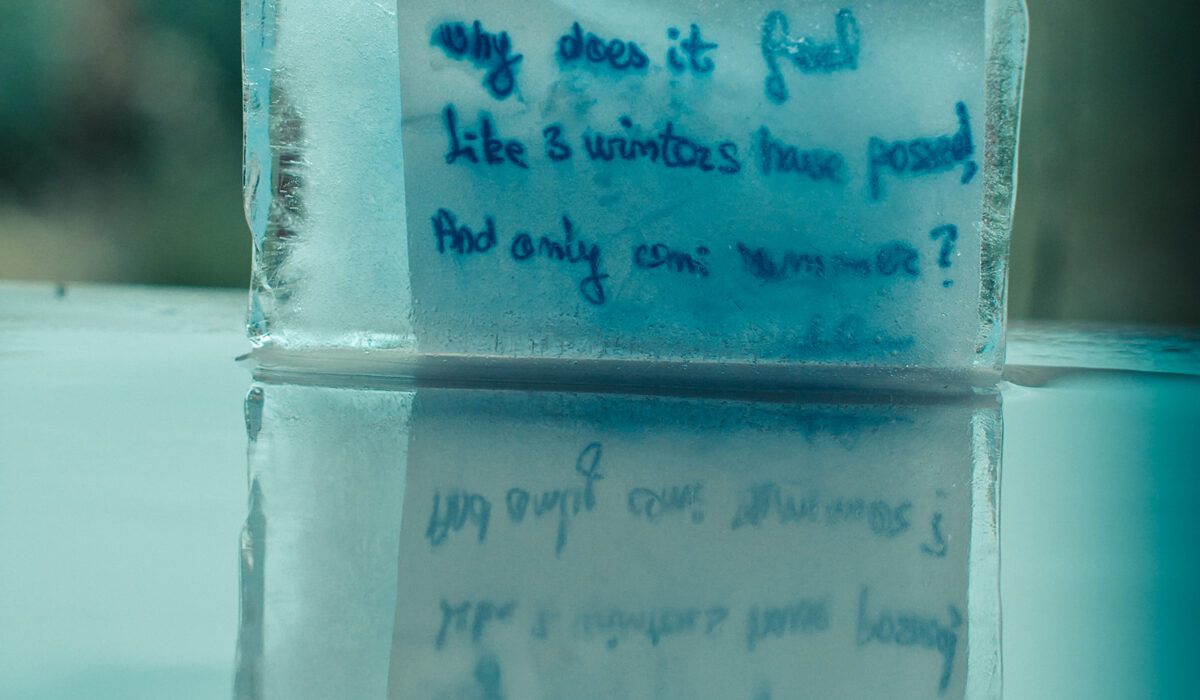 why does it feel
Like 3 winters have passed,
And only summer?